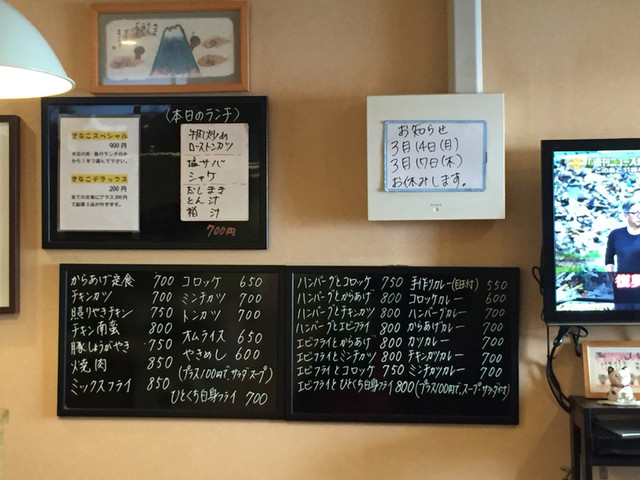 (本日のランチ)
きなこスペシャル
900円
きなこデラックス
200円
牛肉炒め
ローストンカツ
塩サバ
シャケ
だしまき
とん汁
粕汁
700円
お知らせ
3月14日(月)
3月17日(木)
お休みします。
からあげ定食 700
チキンカツ 700
照りやきチキン 750
チキン南蛮 800
豚しょうがやき 750
焼肉 850
ミックスフライ 850
コロッケ 650
ミンチカツ 700
トンカツ 700
オムライス 650
やきめし 600
(プラス100円で、サラダ、スープ)
ひとくち白身フライ 700
ハンバーグとコロッケ 750
ハンバーグとからあげ 800
ハンバーグとチキンカツ 800
ハンバーグとエビフライ 800
エビフライとからあげ 800
エビフライとミンチカツ 800
エビフライとコロッケ 750
エビフライとひとくち白身フライ 800
手作りカレー(目玉付) 550
コロッケカレー 600
ハンバーグカレー 700
からあげカレー 700
カツカレー 700
チキンカツカレー 700
ミンチカツカレー 700
(プラス100円で、スープ サラダ付)